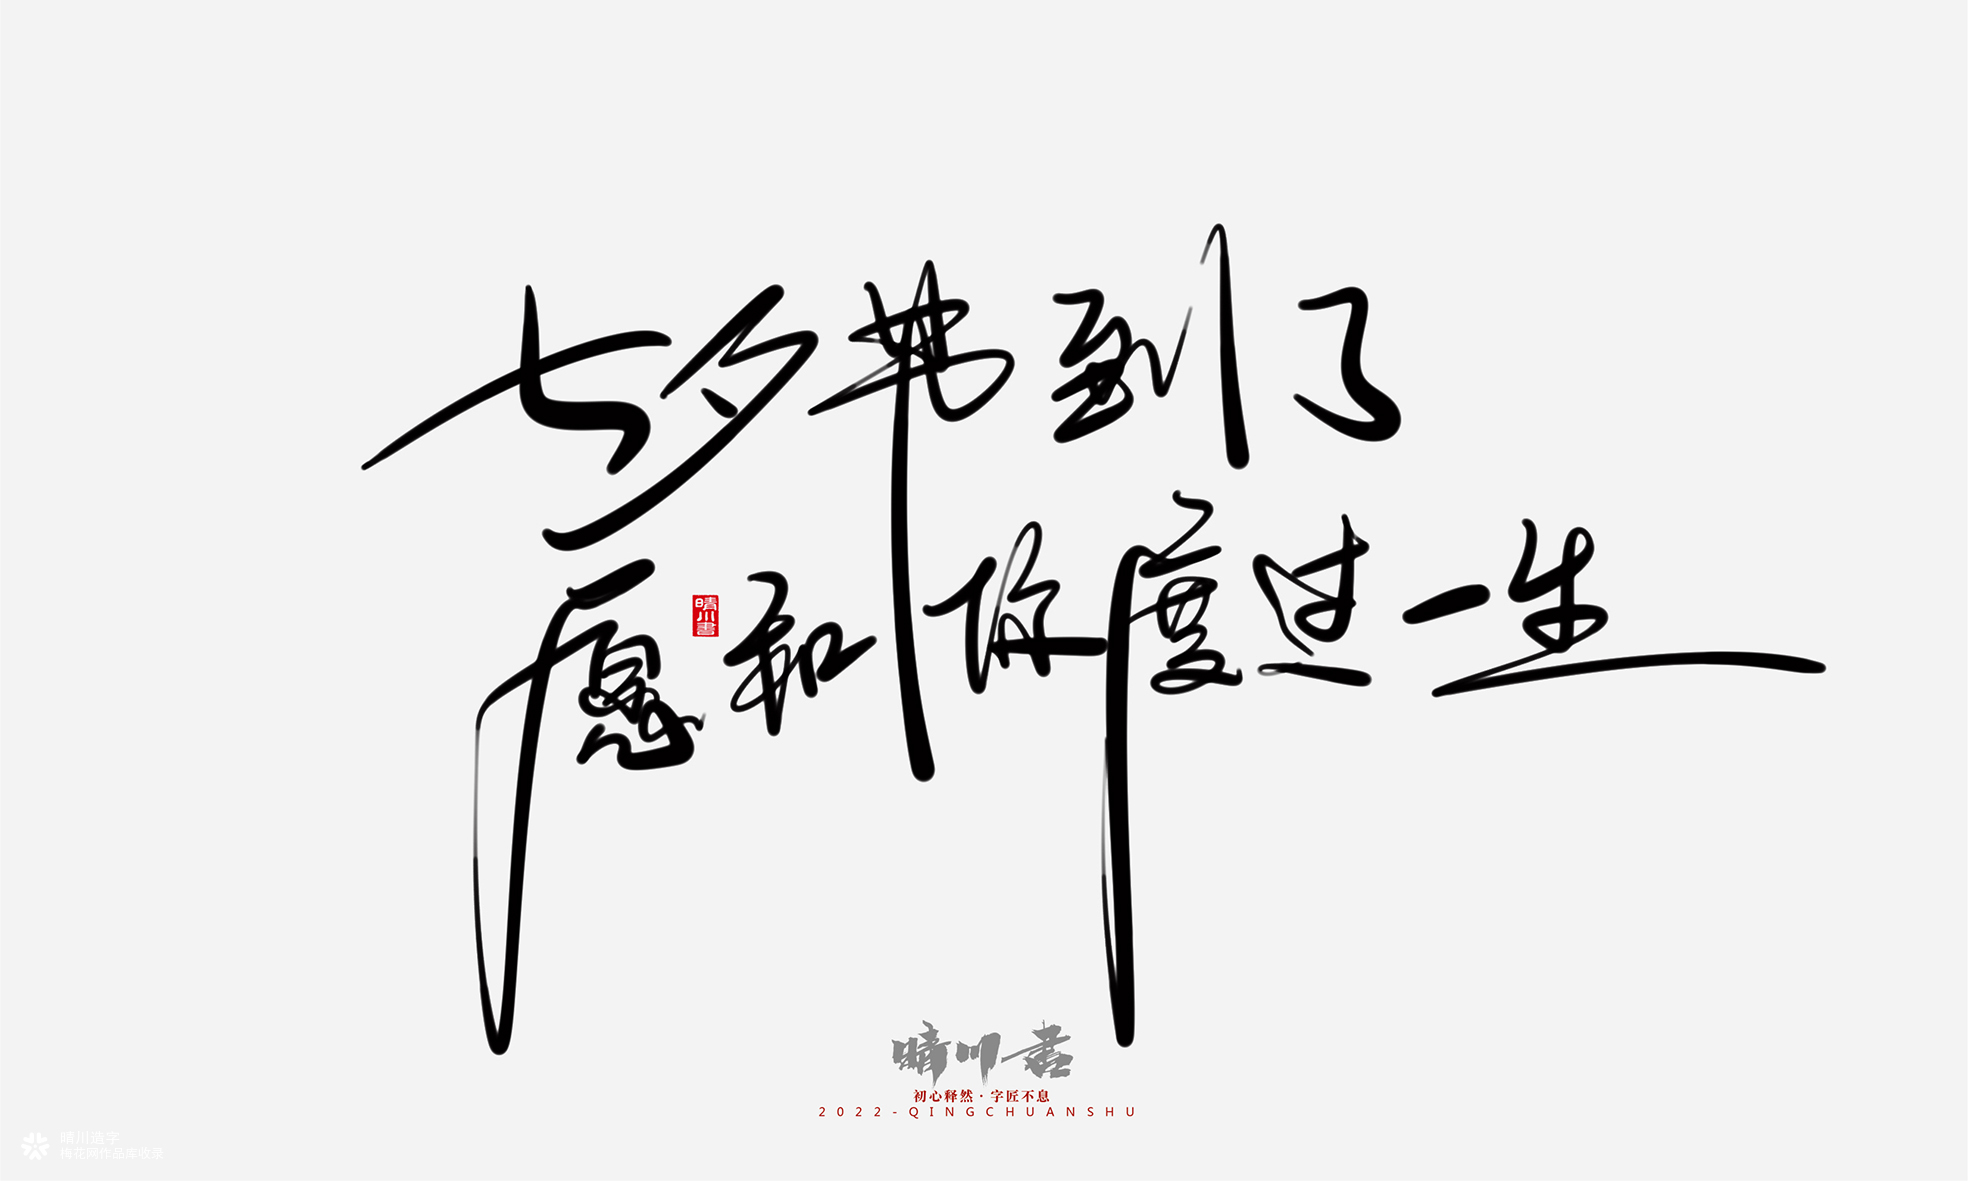 七夕节到了
愿和你度过一生
晴川書
晴川書
初心释然·字匠不息
2022-QINGCHUANSHU
晴川造字
梅花网作品库收录